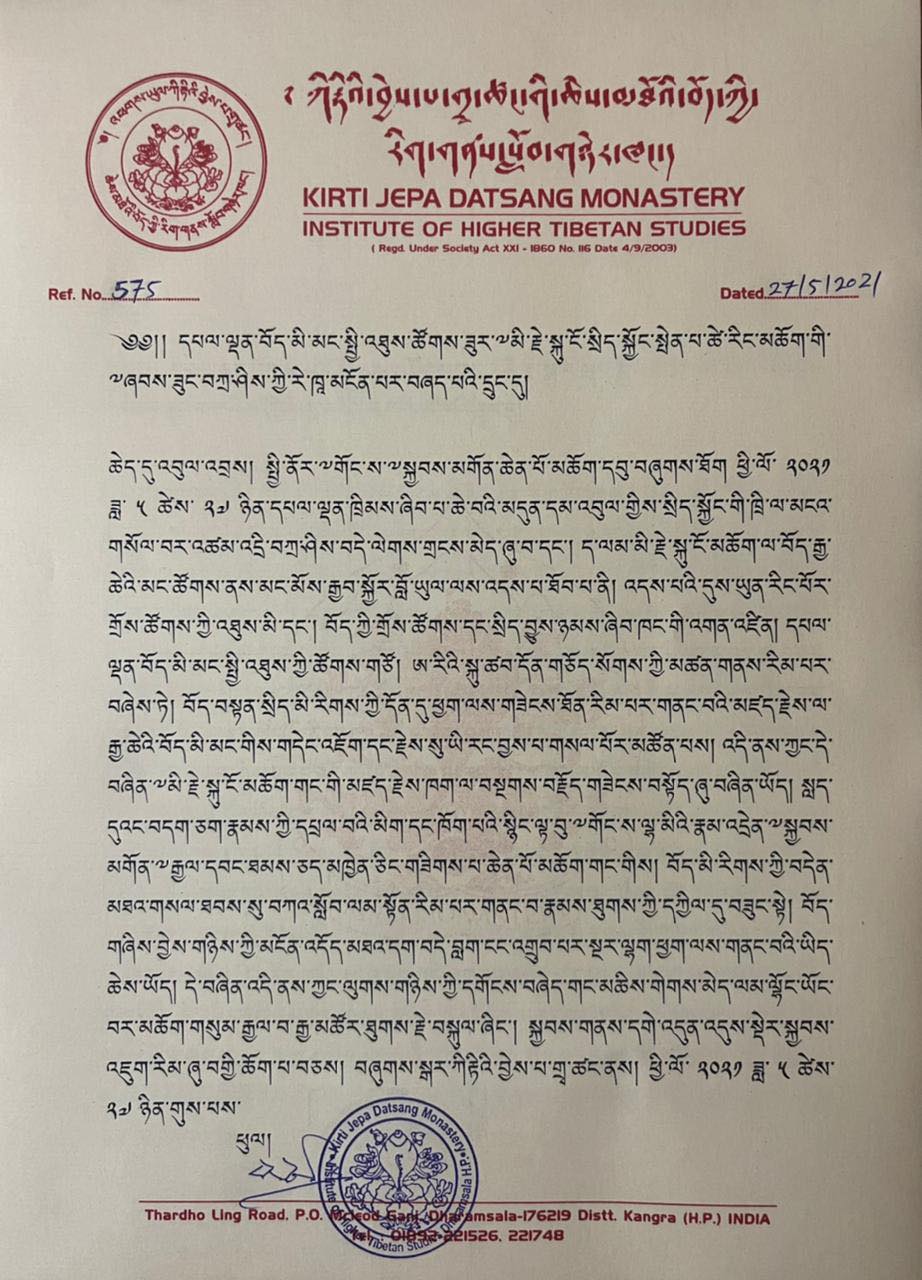 KIRTI JEPA DATSANG MONASTERY
INSTITUTE OF HIGHER TIBETAN STUDIES
( Regd. Under Society Act XXI - 1860 No. 116 Date 4/9/2003)
Ref. No. 575
Dated 27/5/2021
༄༅།། དཔལ་ལྡན་བོད་མི་མང་སྤྱི་འཐུས་ཚོགས་ཟུར་༧མི་རྗེ་སྐུ་ངོ་སྲིད་སྐྱོང་སྤེན་པ་ཚེ་རིང་མཆོག་གི་
༧ཞབས་ཟུང་བཀྲ་ཤིས་ཀྱི་རེ་ཁཱ་མངོན་པར་བཞད་པའི་དྲུང་དུ།
ཆེད་དུ་འབུལ་འབྲས། སྤྱི་ནོར་༧གོང་ས་༧སྐྱབས་མགོན་ཆེན་པོ་མཆོག་དབུ་བཞུགས་ཐོག ཕྱི་ལོ་ ༢༠༢༡
ཟླ་ ༥ ཚེས་ ༢༧ ཉིན་དཔལ་ལྡན་ཁྲིམས་ཞིབ་པ་ཆེ་བའི་མདུན་དམ་འབུལ་གྱིས་སྲིད་སྐྱོང་གི་ཁྲི་ལ་མངའ་
གསོལ་བར་འཚམ་འདྲི་བཀྲ་ཤིས་བདེ་ལེགས་གྲངས་མེད་ཞུ་བ་དང་། ད་ལམ་མི་རྗེ་སྐུ་ངོ་མཆོག་ལ་བོད་རྒྱ་
ཆེའི་མང་ཚོགས་ནས་མང་མོས་རྒྱབ་སྐྱོར་བློ་ཡུལ་ལས་འདས་པ་ཐོབ་པ་ནི། འདས་པའི་དུས་ཡུན་རིང་པོར་
གྲོས་ཚོགས་ཀྱི་འཐུས་མི་དང་། བོད་ཀྱི་གྲོས་ཚོགས་དང་སྲིད་བྱུས་ཉམས་ཞིབ་ཁང་གི་འགན་འཛིན། དཔལ་
ལྡན་བོད་མི་མང་སྤྱི་འཐུས་ཀྱི་ཚོགས་གཙོ། ཨ་རིའི་སྐུ་ཚབ་དོན་གཅོད་སོགས་ཀྱི་མཚན་གནས་རིམ་པར་
བཞེས་ཏེ། བོད་བསྟན་སྲིད་མི་རིགས་ཀྱི་དོན་དུ་ཕྱག་ལས་གཟེངས་ཐོན་རིམ་པར་གནང་བའི་མཛད་རྗེས་ལ་
རྒྱ་ཆེའི་བོད་མི་མང་གིས་གདེང་འཇོག་དང་རྗེས་སུ་ཡི་རང་བྱས་པ་གསལ་པོར་མཚོན་པས། འདི་ནས་ཀྱང་དེ་
བཞིན་༧མི་རྗེ་སྐུ་ངོ་མཆོག་གང་གི་མཛད་རྗེས་ཁག་ལ་བསྔགས་བརྗོད་གཟེངས་བསྟོད་ཞུ་བཞིན་ཡོད། སླད་
དུའང་བདག་ཅག་རྣམས་ཀྱི་དཔྲལ་བའི་མིག་དང་ཁོག་པའི་སྙིང་ལྟ་བུ་༧གོང་ས་ལྷ་མིའི་རྣམ་འདྲེན་༧སྐྱབས་
མགོན་༧རྒྱལ་དབང་ཐམས་ཅད་མཁྱེན་ཅིང་གཟིགས་པ་ཆེན་པོ་མཆོག་གང་གིས། བོད་མི་རིགས་ཀྱི་བདེན་
མཐའ་གསལ་ཐབས་སུ་བཀའ་སློབ་ལམ་སྟོན་རིམ་པར་གནང་བ་རྣམས་ཐུགས་ཀྱི་དཀྱིལ་དུ་བཟུང་སྟེ། བོད་
གཞིས་བྱེས་གཉིས་ཀྱི་མངོན་འདོད་མཐའ་དག་བདེ་བླག་ངང་འགྲུབ་པར་སྔར་ལྷག་ཕྱག་ལས་གནང་བའི་ཡིད་
ཆེས་ཡོད། དེ་བཞིན་འདི་ནས་ཀྱང་ལུགས་གཉིས་ཀྱི་དགོངས་བཞེད་གང་མཆིས་གེགས་མེད་ལམ་ལྷོང་ཡོང་
བར་མཆོག་གསུམ་རྒྱལ་བ་རྒྱ་མཚོར་ཐུགས་རྗེ་བསྐུལ་ཞིང་། སྐྱབས་གནས་དགེ་འདུན་འདུས་སྡེར་སྐྱབས་
འཇུག་རིམ་ཞུ་བགྱི་ཆོག་པ་བཅས། བཞུགས་སྒར་ཀིརྟིའི་བྱེས་པ་གྲྭ་ཚང་ནས། ཕྱི་ལོ་ ༢༠༢༡ ཟླ་ ༥ ཚེས་
༢༧ ཉིན་གུས་པས་
ཕུལ།
Kirti Jepa Datsang Monastery
Institute of Higher Tibetan Studies Dharamsala H.P.
Thardho Ling Road. P.O. Mcleod Ganj, Dharamsala-176219 Distt. Kangra (H.P.) INDIA
Tel : 01892-221526, 221748